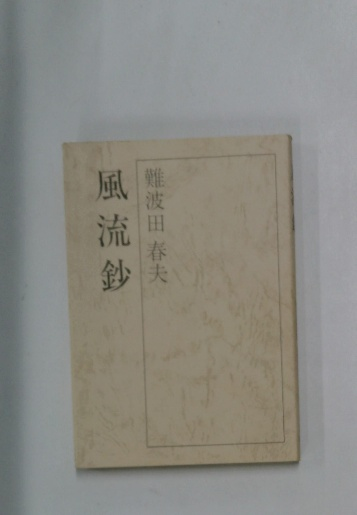 風流鈔
難波田春夫